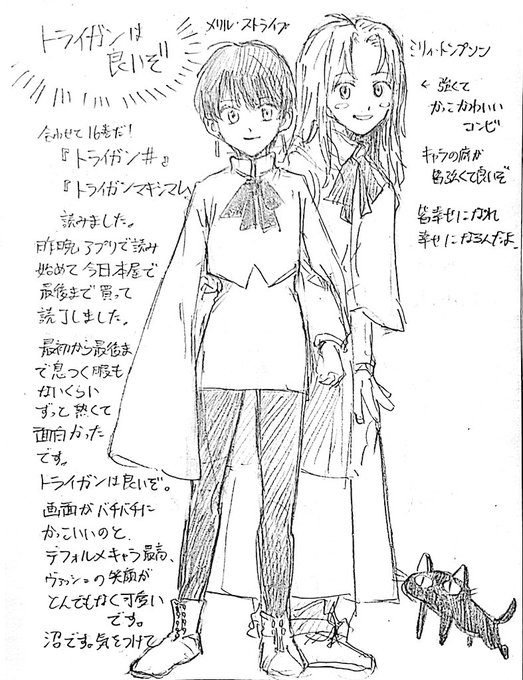 トライガンは
良いぞ
メリル・ストライフ
ミリィ・トンプソン
← 強くて
かっこかわいい
コンビ
キャラの癖が
皆強くて良いぞ
皆幸せになれ
幸せになるんだよ
合わせて16巻だ!
『トライガン#』
『トライガンマキシマム』
読みました。
昨晩アプリで読み
始めて今日本屋で
最後まで買って
読了しました。
最初から最後ま
で息つく暇も
ないくらい
ずっと熱くて
面白かった
です。
トライガンは良いぞ。
画面がバチバチに
かっこいいのと、
デフォルメキャラ最高、
ヴァッシュの笑顔が
とんでもなく可愛い
です。
沼です。気をつけて